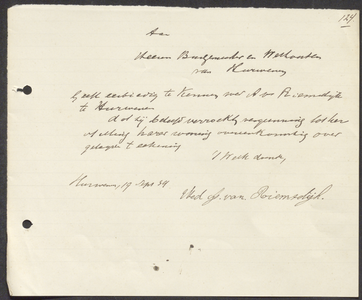 124
Aan
Heeren Burgemeester en Wethouders
van Hurwenen
Geeft eerbiedig te kennen wed A van Riemsdijk
te Hurwenen
dat zij beleefd verzoekt vergunning tot her
stelling harer woning overeenkomstig over
gelegde teekening
't Welk doende,
Hurwenen, 19 Apr 34
Wed. van Riemsdijk.